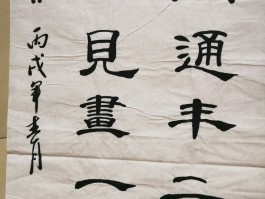 通丰
見畫一
丙戌年春月